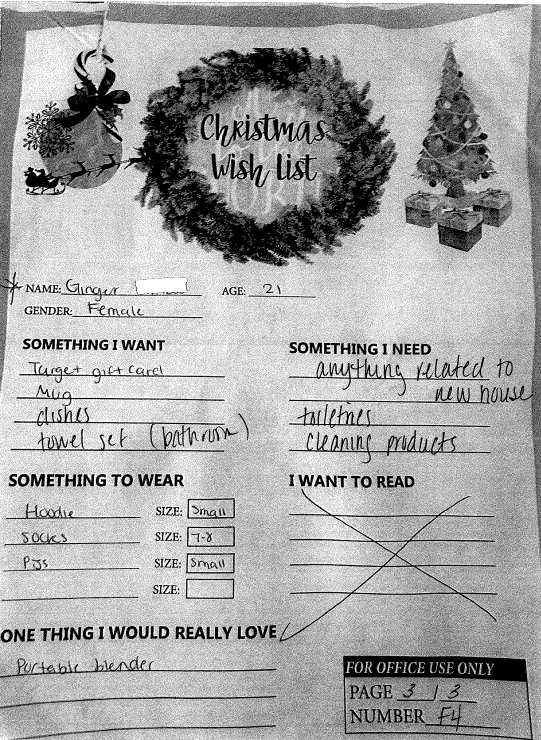 Christmas
Wish List
NAME: Ginger
AGE: 21
GENDER: Female
SOMETHING I WANT
Target gift card
Mug
dishes
towel set (bathroom)
SOMETHING I NEED
anything related to
new house
toiletries
cleaning products
SOMETHING TO WEAR
Hoodie SIZE: Small
Socks SIZE: 7-8
PJs SIZE: Small
SIZE:
I WANT TO READ
ONE THING I WOULD REALLY LOVE
Portable blender
FOR OFFICE USE ONLY
PAGE 3 / 3
NUMBER F4